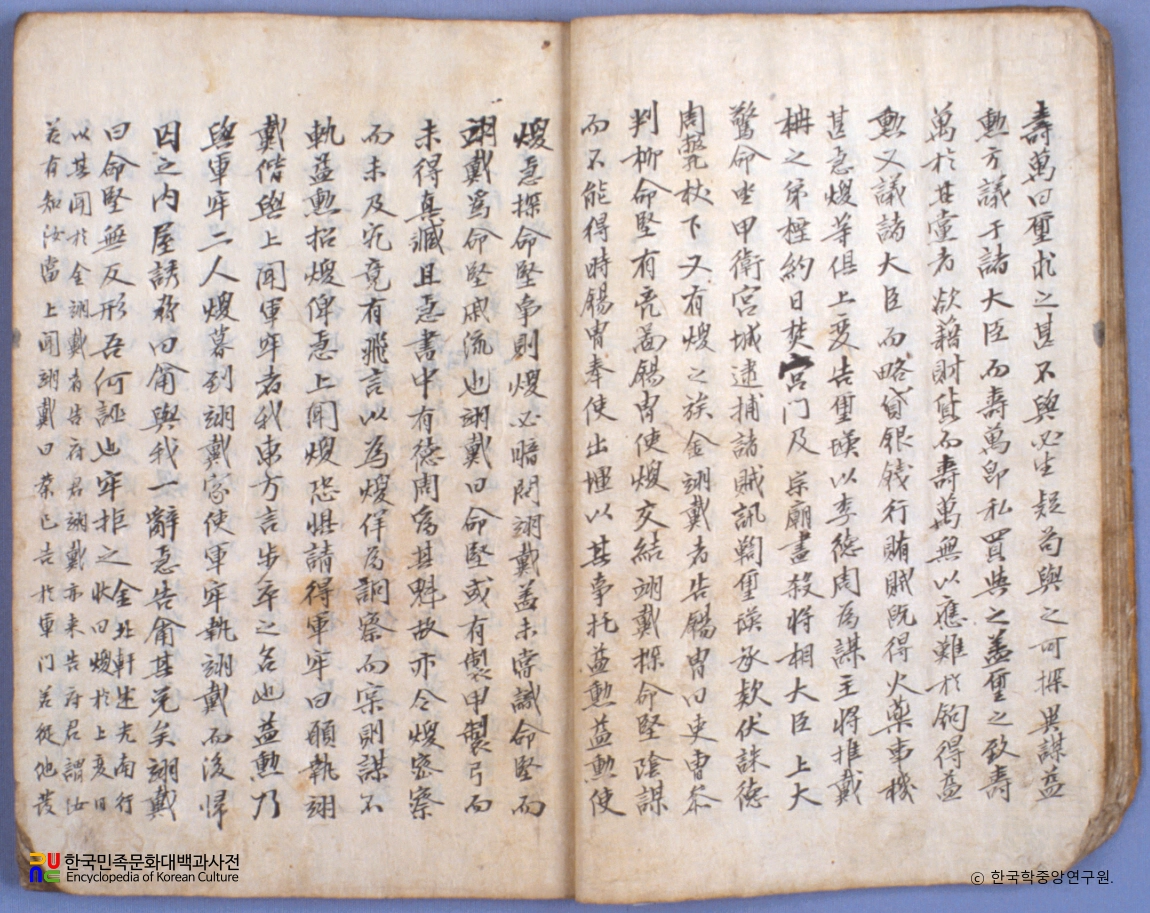 壽萬曰璽求之甚不與必生疑苟與之可探異謀益
勳方議于諸大臣而壽萬卽私買與之盖璽之致壽
萬於其黨者欲藉財貨而壽萬無以應難於鉤得益
勳又議諸大臣而略貸銀錢行賄賊旣得火藥事機
甚急煖等俱上變告璽瑛以李德周爲謀主將推戴
枏之弟樫約日焚宮門及宗廟盡殺將相大臣上大
驚命坐甲衛宮城逮捕諸賊訊鞫璽瑛承款伏誅德
周斃杖下又有煖之族金翊戴者告錫冑曰吏曹叅
判柳命堅有亮啚錫冑使煖交結翊戴探命堅陰謀
而不能得時錫冑奉使出壃以其事托益勳益勳使
煖急探命堅事則煖必暗問翊戴盖未嘗識命堅而
翊戴爲命堅戚流也翊戴曰命堅或有製甲製弓而
未得真贓且急書中有德周爲其魁故亦令煖密察
而未及究竟有飛言以為煖佯為詗察而宲則謀不
軌益勳招煖俾急上聞煖恐惧請得軍牢曰願執翊
戴偕與上聞軍牢者我東方言步卒之名也益勳乃
與軍牢二人煖暮到翊戴家使軍牢執翊戴而後歸
囚之內屋誘脅曰爾與我一辭急告爾其免矣翊戴
曰命堅無反形吾何誣也牢拒之金北軒述先南行狀曰煖於上変日
以其聞於金翊戴者告府君翊戴亦来告府君謂汝
若有知汝當上聞翊戴曰葉已告於軍門若從他發